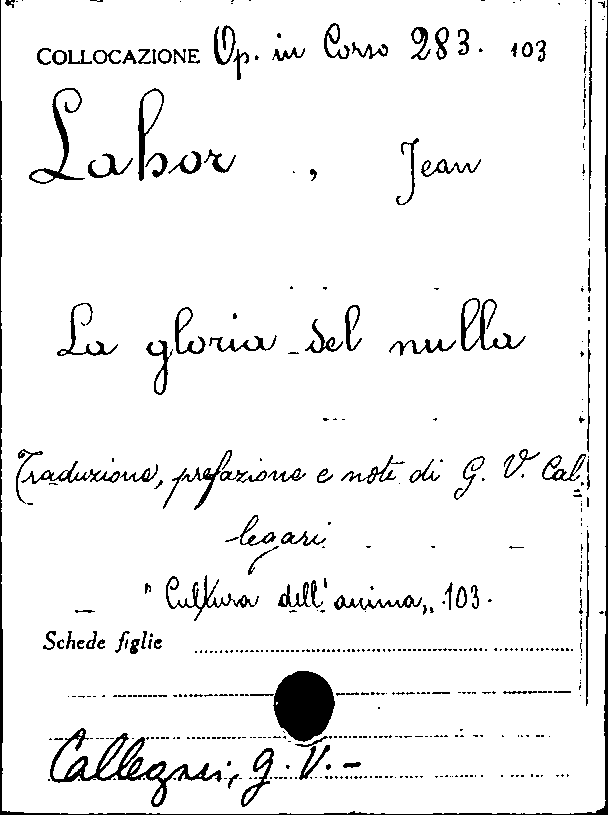 COLLOCAZIONE Op. in Corso 283. 103
Lahor, Jean
La gloria del nulla
Traduzione, prefazione e note di G. V. Cal
legari
"Cultura dell'anima„ 103.
Schede figlie
Callegari, G. V. -